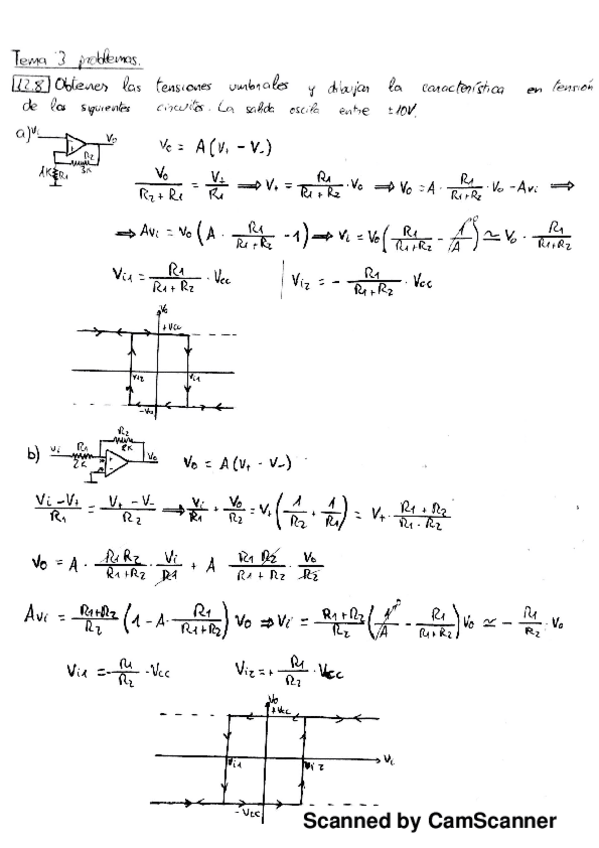 Tema 3 problemas.
12.8 Obtener las tensiones umbrales y dibujar la característica en tensión
de los siguientes circuitos. La salida oscila entre ±10V.
a) Vi Vo R2 3K 1K R1
Vo = A(V+ - V-)
Vo/(R2 + R1) = V+/R1 ⟹ V+ = R1/(R1 + R2) · Vo ⟹ Vo = A · R1/(R1+R2) · Vo - Avi ⟹
⟹ Avi = Vo(A · R1/(R1+R2) - 1) ⟹ Vi = Vo(R1/(R1+R2) - 1/A → 0) ≃ Vo · R1/(R1+R2)
Vi1 = R1/(R1+R2) · Vcc | Vi2 = - R1/(R1+R2) · Vcc
Vo
+Vcc
Vi2 Vi1
-Vo
b) Vi R1 2K R2 Vo
Vo = A(V+ - V-)
(Vi - V+)/R1 = (V+ - V-)/R2 ⟹ Vi/R1 + Vo/R2 = V+(1/R2 + 1/R1) = V+ · (R1 + R2)/(R1 · R2)
Vo = A · R1R2/(R1+R2) · Vi/R1 + A R1 R2/(R1 + R2) · Vo/R2
Avi = (R1+R2)/R2 (1 - A · R1/(R1+R2)) Vo ⟹ Vi = (R1+R2)/R2 (1/A → 0 - R1/(R1+R2)) Vo ≃ - R1/R2 · Vo
Vi1 = - R1/R2 · Vcc Vi2 = + R1/R2 · Vcc
Vo
+Vcc
Vi1 Vi2 Vi
-Vcc
Scanned by CamScanner